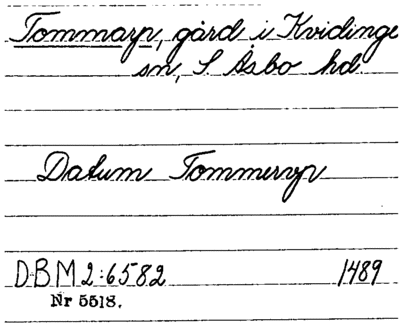 Tommarp, gård i Kvidinge
sn, S Åsbo hd.
Datum Tommerup
DBM 2:6582 1489
Nr 5518.